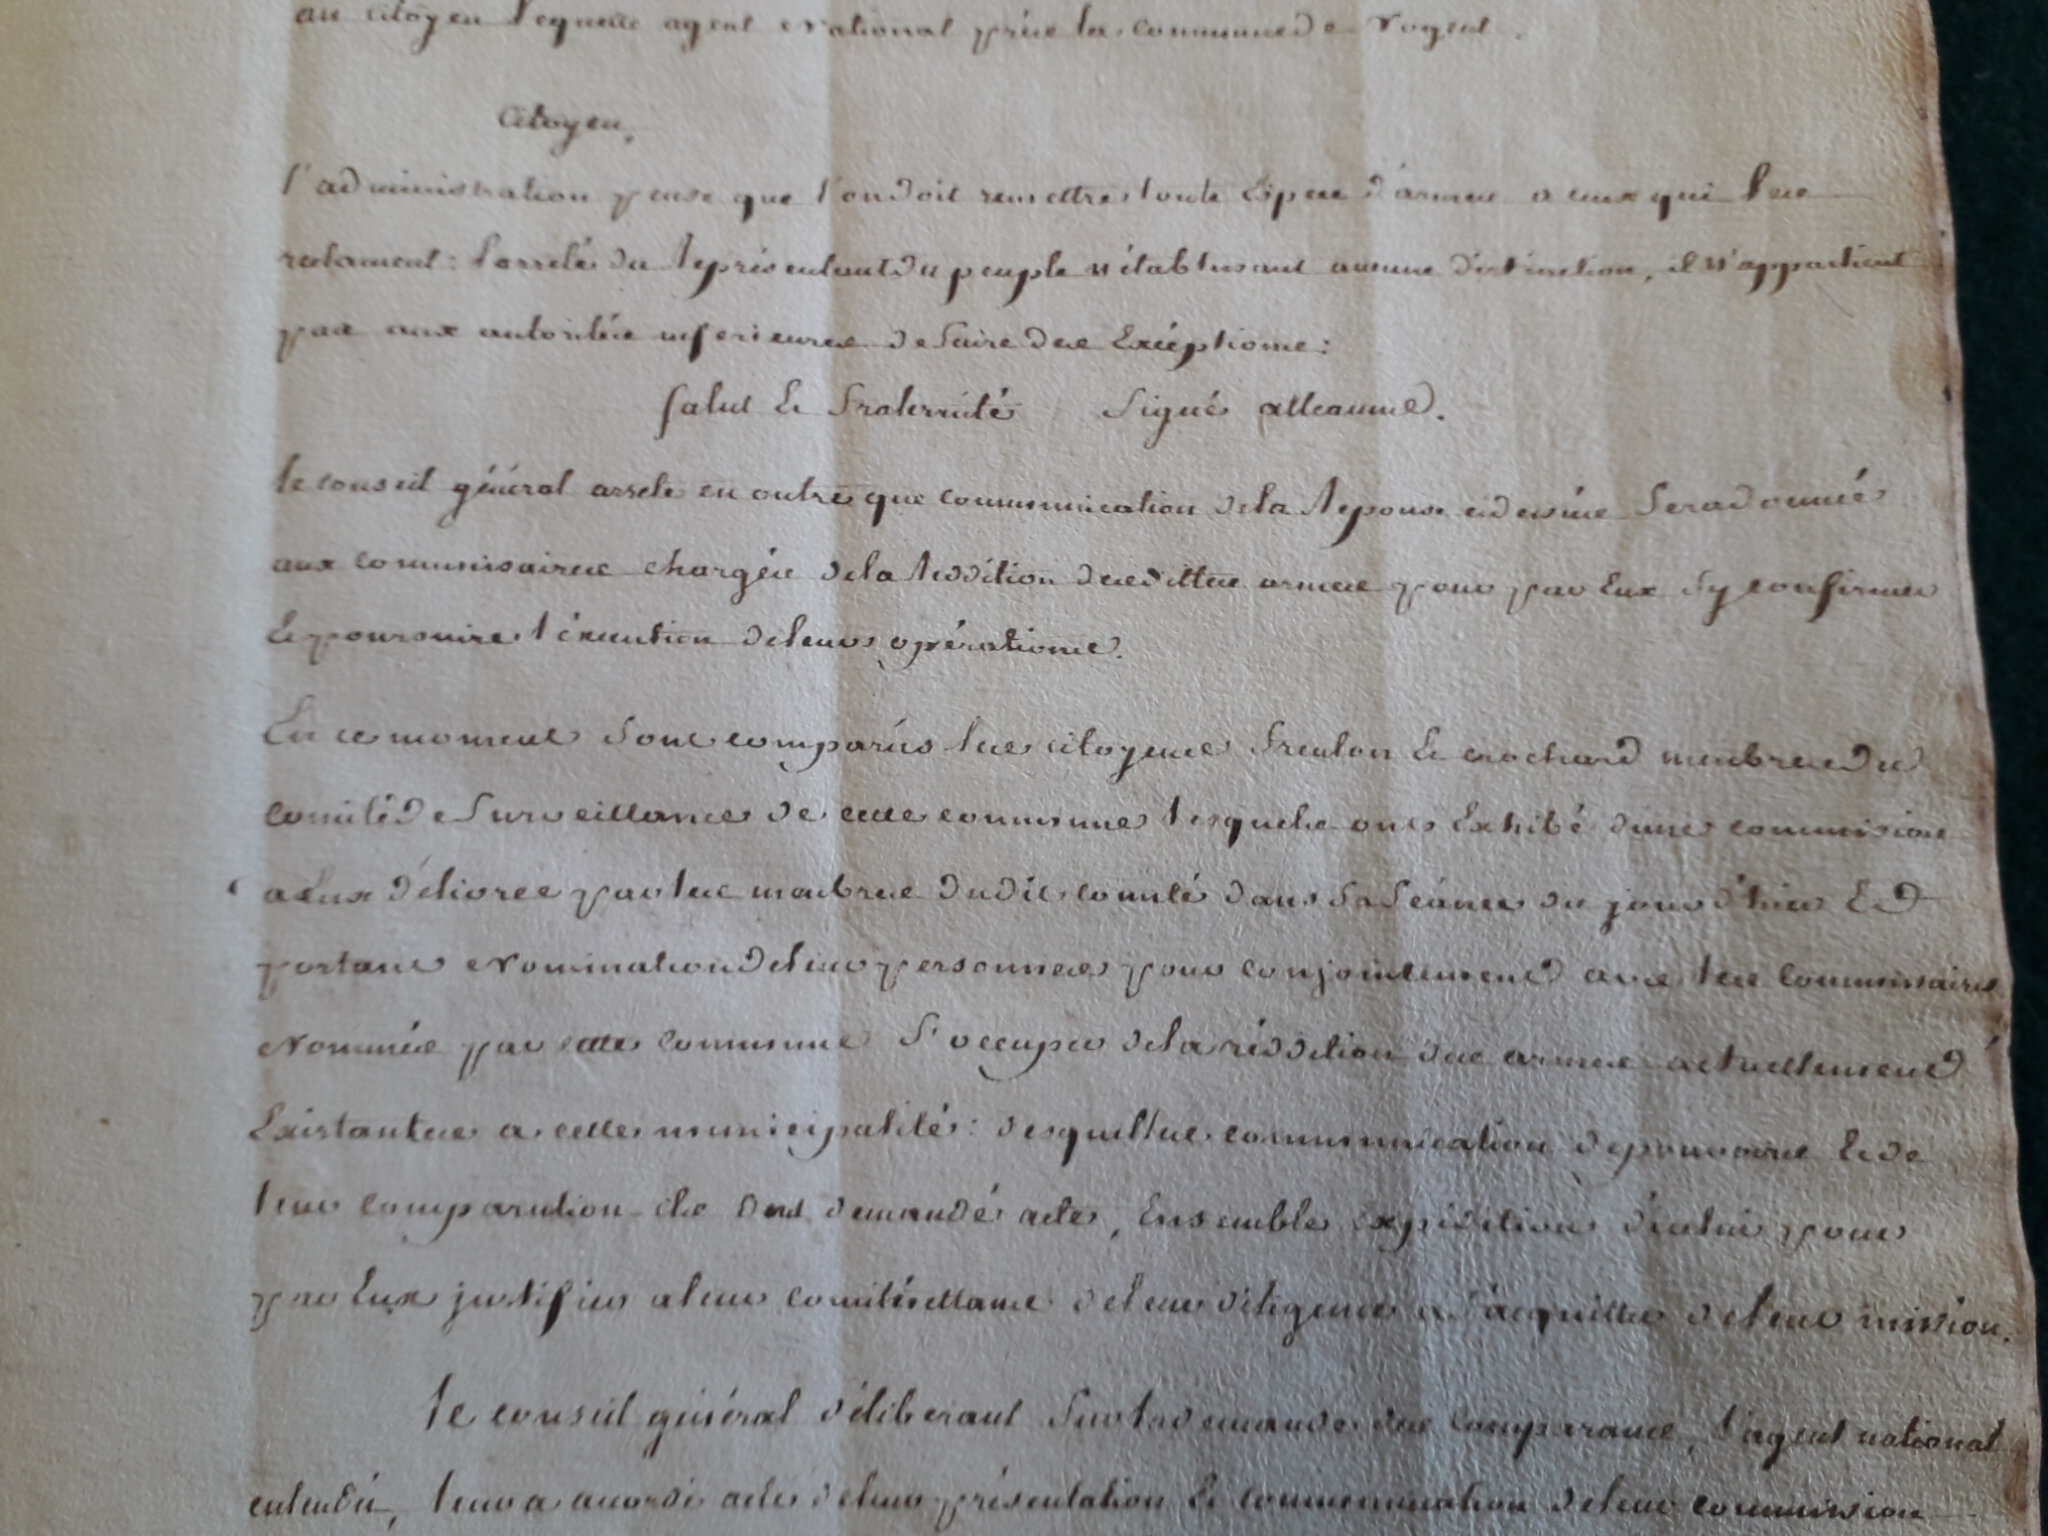 au citoyen Pequette agent National près la commune de Nogent.
Citoyen,
l'administration pense que l'on doit remettre toute Espece d'armes a ceux qui les
reclament: l'arreté du Représentant du peuple n'établissant aucune distinction, il n'appartient
pas aux autorités inferieures de faire des Exéptions:
Salut Et Fraternité Signé alleaume.
le conseil général arrete en outre que communication de la Reponse cidessus Sera donnée
aux commissaires chargés de la Reddition desdittes armes pour par Eux s'y confirmer
Et poursuivre l'éxecution de leurs opérations.
En ce moment Sont comparus les citoyens Frenlon Et crochard membres du
comité de Surveillance de cette commune lesquels ont Exhibé d'une commission
a Eux délivrée par les membres dudit comité dans Sa Séance du jour d'hier Et
portant Nomination de leurs personnes pour conjointement avec les commissaires
Nommés par cette commune S'occuper de la réddition des armes actuellement
Existantes a cette municipalité: desquelles communication de pouvoirs Et de
leur comparution ils ont demandé acte, Ensemble expédition d'icelui pour
par Eux justifier a leur comité de leur diligence a S'acquitter de leur mission.
le conseil général déliberant Sur la demande des comparants, l'agent national
entendu, leur a accordé acte de leur présentation Et communication de leur commission